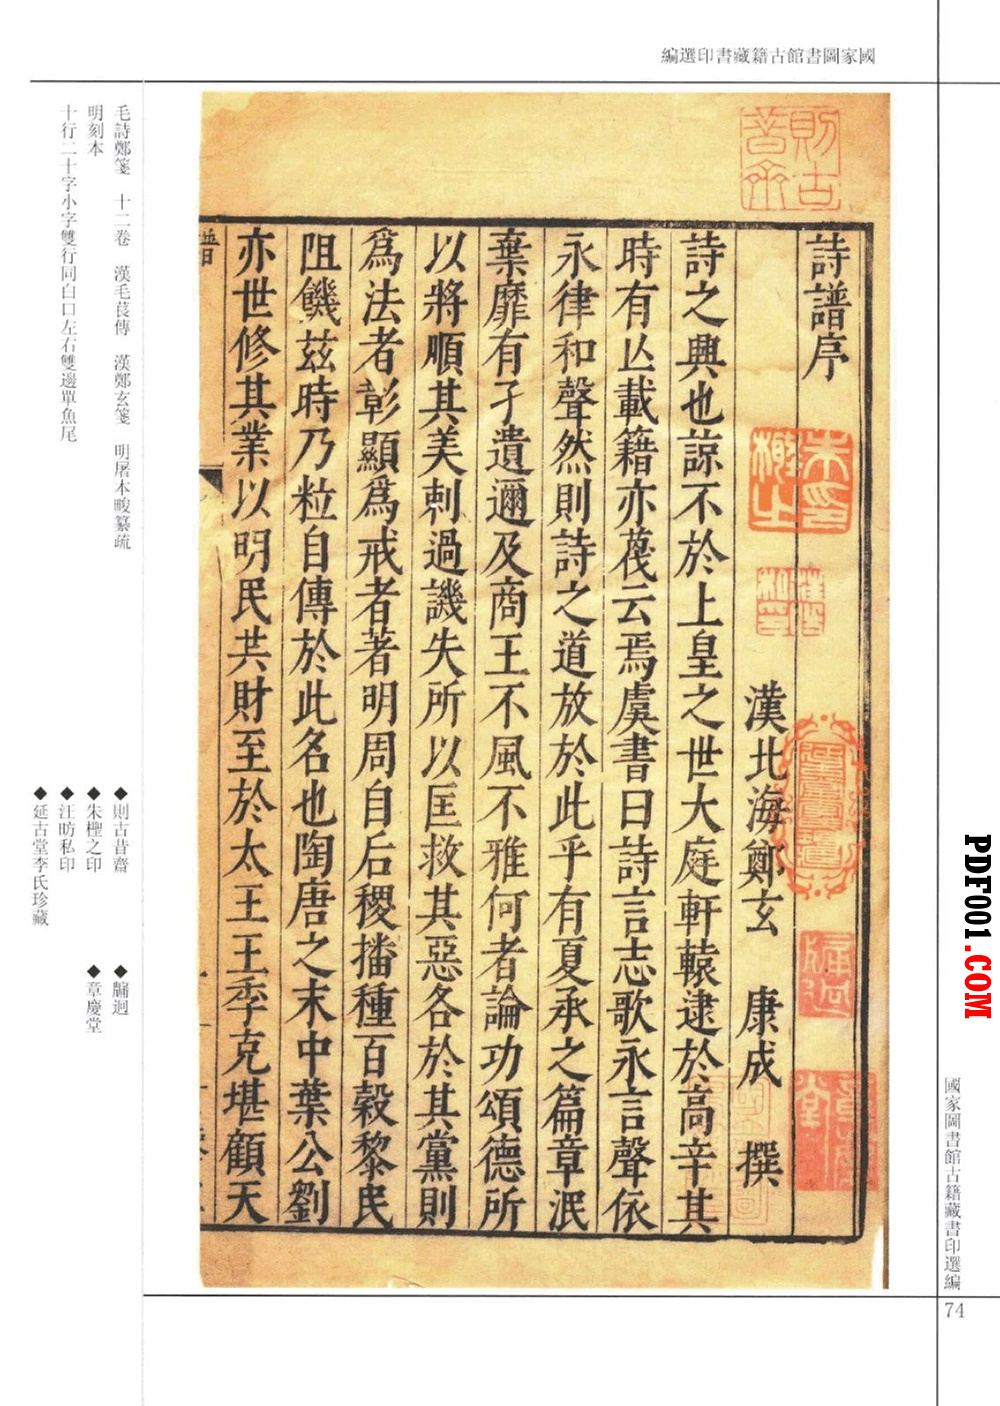 國家圖書館古籍藏書印選編
詩譜序
漢北海鄭玄 康成 撰
詩之興也諒不於上皇之世大庭軒轅逮於高辛其
時有亾載籍亦蔑云焉虞書曰詩言志歌永言聲依
永律和聲然則詩之道放於此乎有夏承之篇章泯
棄靡有孑遺邇及商王不風不雅何者論功頌德所
以將順其美刺過譏失所以匡救其惡各於其黨則
爲法者彰顯爲戒者著明周自后稷播種百穀黎民
阻饑茲時乃粒自傳於此名也陶唐之末中葉公劉
亦世修其業以明民共財至於太王王季克堪顧天
譜
則古昔齋
毛詩鄭箋 十二卷 漢毛萇傳 漢鄭玄箋 明屠本畯纂疏
明刻本
十行二十字小字雙行同白口左右雙邊單魚尾
◆則古昔齋
◆朱檉之印
◆汪昉私印
◆延古堂李氏珍藏
◆牖迥
◆章慶堂
國家圖書館古籍藏書印選編
74
PDF001.COM